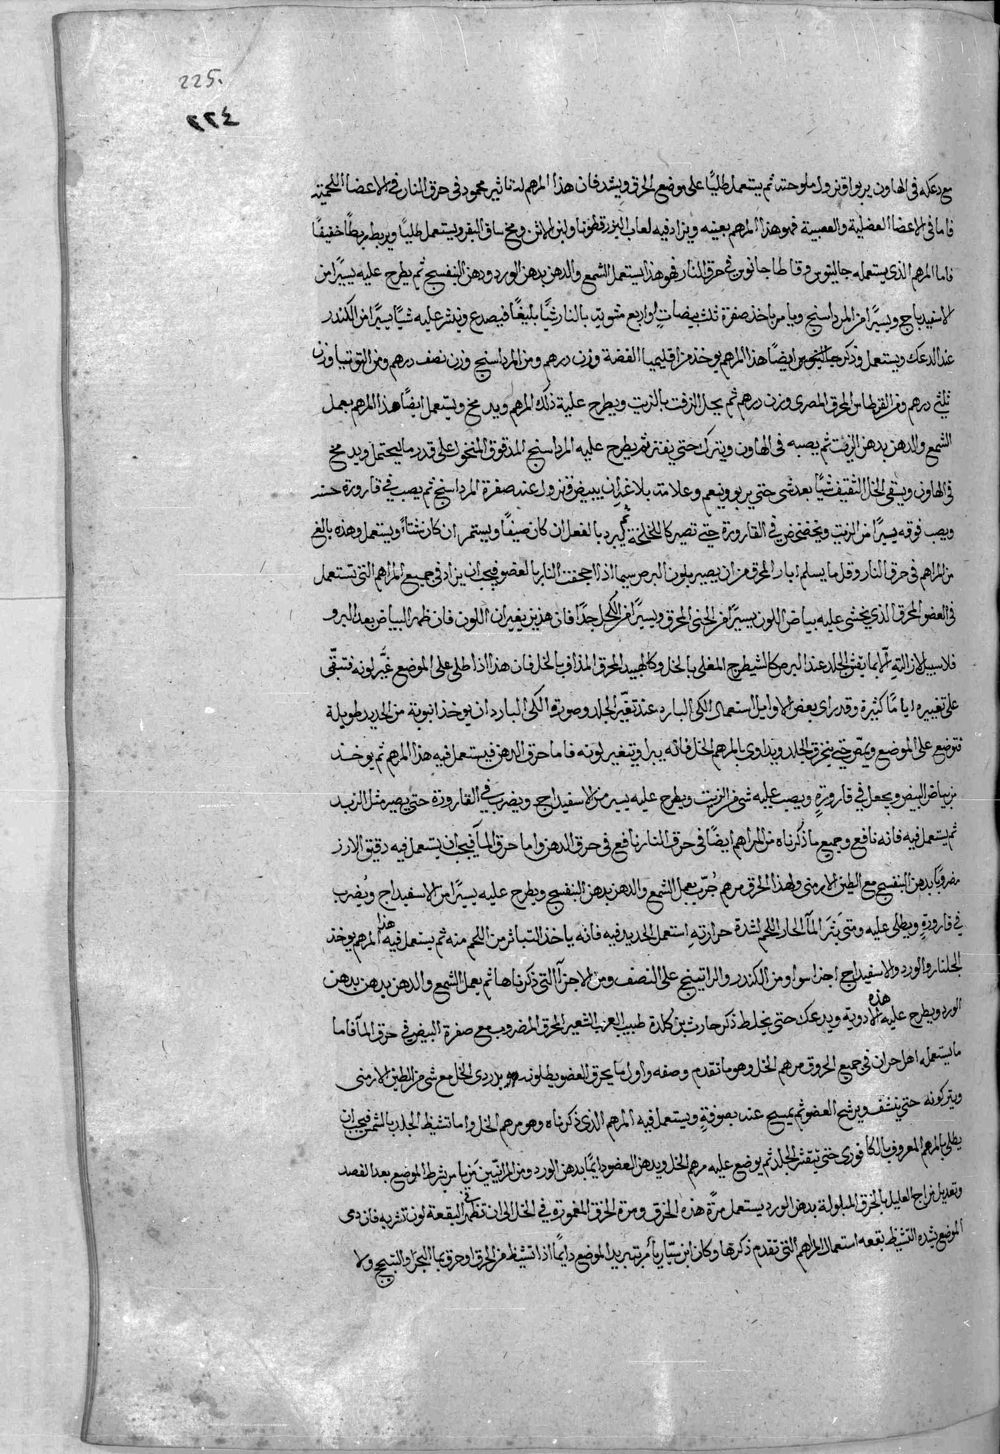 225.
٢٢٤
مع دعكه في الهاون يربوا وتزول ملوحته ثم يستعمل طليًا على موضع الحرق ويشد فان هذا المرهم له تاثير محمود في حرق النار في الاعضا اللحمية
فاما في الاعضا العضلية والعصبية فهو هذا المرهم بعينه ويزاد فيه لعاب البزرقطونا ولبن الاتن ومخ ساق البقر ويستعمل طليًا ويربط ربطًا خفيفًا
فاما المرهم الذي يستعمله جالينوس وقاطاجانوس في حرق النار فهو هذا يستعمل الشمع والدهن بدهن الورد ودهن البنفسج ثم يطرح عليه يسيرًا من
الاسفيداج ويسيرًا من المرداسنج ويامر باخذ صفرة ثلث بيضات او اربع مشوية بالنار شيًا بليغًا فيصدع وينثر عليه شيًا يسيرًا من الكندر
عند الدعك ويستعمل وذكر جالينوس ايضًا هذا المرهم يوخذ من اقليميا الفضة وزن درهم ومن المرداسنج وزن نصف درهم ومن التوتيا وزن
ثلثي درهم ومن القرطاس المحرق المصري وزن درهم ثم يحل الزفت بالزيت ويطرح عليه ذلك المرهم ويدمخ ويستعمل ايضًا هذا المرهم يعمل
الشمع والدهن بدهن الزيت ثم يصبه في الهاون ويترك حتى يفتر ثم يطرح عليه المرداسنج المدقوق المنخول على قدر ما يحتمل ويدمخ
في الهاون ويسقى الخل الثقيف شيًا بعد شي حتى يربو وينعم وعلامة بلاغه ان يبيض وتزول عنه صفرة المرداسنج ثم يصب في قارورة حسنه
ويصب فوقه يسيرًا من الزيت ويخضخض في القارورة حتى تصير كاللخلخة ثم يبرد بالفعل ان كان صيفًا ويستمر ان كان شتاءً ويستعمل وهذه بالغ
من المراهم في حرق النار وقل ما يسلم اثار المحرق من ان يصير بلون البرص سيما اذا اجحفت النار بالعضو فيجب ان يزاد في جميع المراهم التي تستعمل
في العضو المحرق الذي يخشى عليه بياض اللون يسيرًا من الحنى المحرق ويسيرًا من الكحل جدًا فان هذين يغيران اللون فان ظهر البياض بعد البرو
فلا سبيل لازالته الا بما يقشر الجلد عند البرص كالشيطرج المغلي بالخل وكالهبيد المحرق المذاف بالخل فان هذا اذا طلي على الموضع غيّر لونه فتبقى
على تغييره اياما كثيرة وقد راى بعض الاوايل استعمال الكي البارد عند تغير الجلد وصورة الكي البارد ان يوخذ انبوبة من الحديد طويلة
فتوضع على الموضع ويمص حتى ينخرق الجلد ويداوى بالمرهم الخل فانه يبرا ويتغير لونه فاما حرق الدهن فيستعمل فيه هذا المرهم ثم يوخذ
من بياض البيض ويجعل في قارورة ويصب عليه شي من الزيت ويطرح عليه يسير من الاسفيداج ويضرب في القارورة حتى يصير مثل الزبد
ثم يستعمل فيه فانه نافع وجميع ما ذكرناه من المراهم ايضًا في حرق النار نافع في حرق الدهن واما حرق الماء فيجب ان يستعمل فيه دقيق الارز
مضروبًا بدهن البنفسج مع الطين الارمني ولهذا الحرق مرهم جُرّب يعمل الشمع والدهن بدهن البنفسج ويطرح عليه يسيرًا من الاسفيداج ويُضرب
في قارورة ويطلى عليه ومتى بثر الماء الحار اللحم لشدة حرارته استعمل الحديد فيه فانه ياخذ التباثر من اللحم منه ثم يستعمل فيه هذا المرهم يوخذ
الجلنار والورد والاسفيداج اجزا سوا ومن الكندر والراتينج على النصف ومن الاجزا التي ذكرناها ثم يعمل الشمع والدهن بدهن
الورد ويطرح عليه هذه الادوية ويدعك حتى يختلط ذكر حارث بن كلدة طبيب العرب الشعير المحرق المضروب مع صفرة البيض في حرق الماء فاما
ما يستعمله اهل حران في جميع الحروق مرهم الخل وهو ما تقدم وصفه واول ما يحرق العضو يطلونه بدردي الخل مع شي من الطين الارمني
ويتركونه حتى ينشف ويرشح العضو ثم يمسح عنه بصوفة ويستعمل فيه المرهم الذي ذكرناه وهو مرهم الخل واما تشيط الجلد بالشمس فيجب ان
يطلى بالمرهم المعروف بالكافوري حتى يتقشر الجلد ثم يوضع عليه مرهم الخل ويدهن العضو دايمًا بدهن الورد ومن المراتبين من يامر بشرط الموضع بعد الفصد
وتعديل مزاج العليل بالخرق المبلولة بدهن الورد يستعمل مرّة هذه الخرق ومرة الخرق المغموزة في الخل الى ان تظهر في البقعة لون تشربه فان دى
الموضع بشدة التشيط بقعه استعمال المراهم التي تقدم ذكرها وكان ابن سيار يامر بتبريد الموضع دايمًا اذا تشيط من الحرق او حرق بما البحر او الثلج ولا